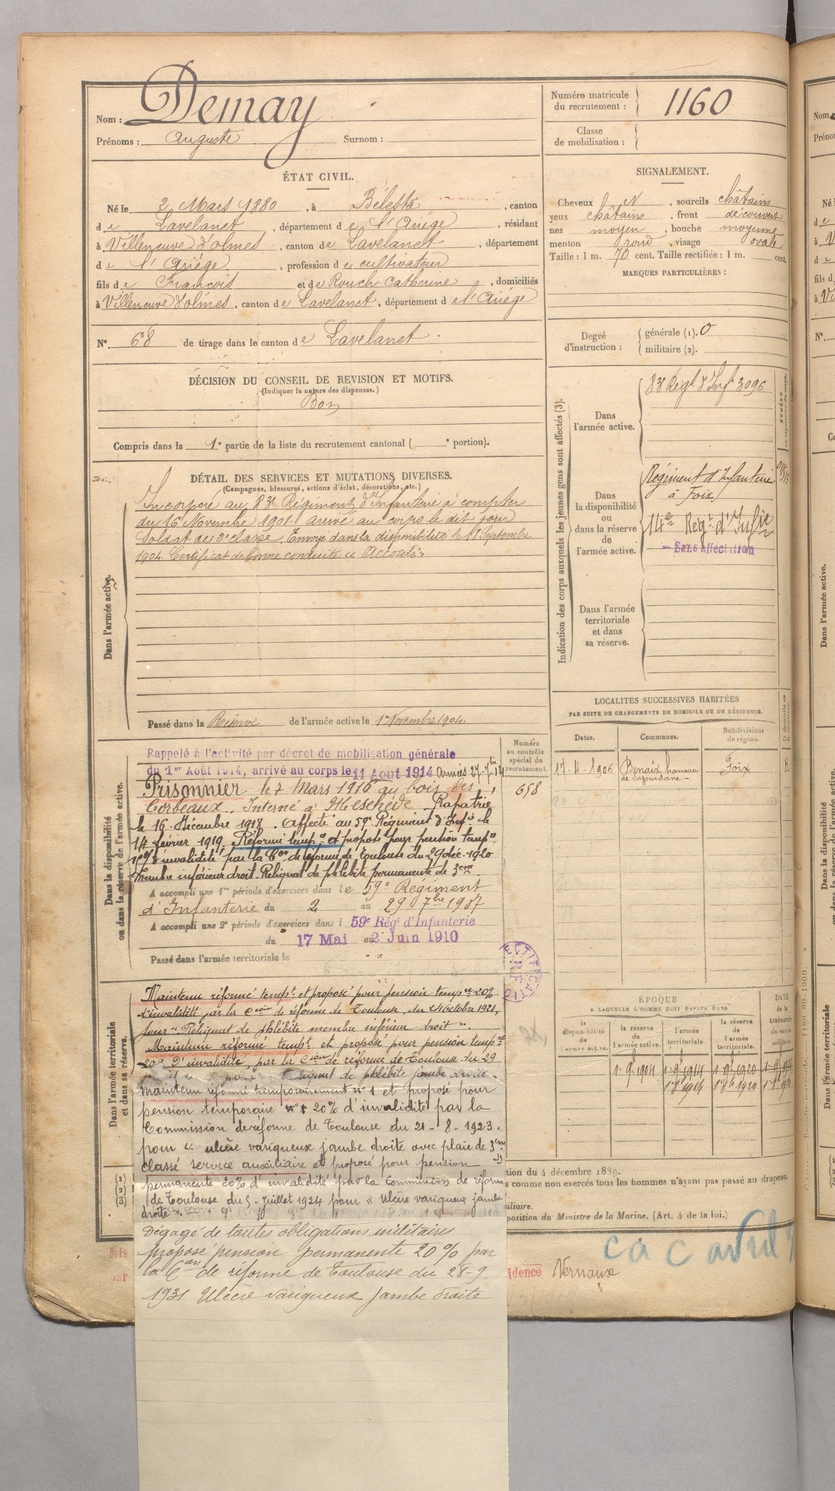 Nom : Demay
Prénoms : Auguste Surnom :
Numéro matricule du recrutement : 1160
Classe de mobilisation :
ÉTAT CIVIL.
Né le 2 Mars 1880, à Bélesta, canton
de Lavelanet, département de l'Ariège, résidant
à Villeneuve d'olmes, canton de Lavelanet, département
de l'Ariège, profession de cultivateur
fils de François et de Rouch Catherine, domiciliés
à Villeneuve d'olmes, canton de Lavelanet, département de l'Ariège
N° 68 de tirage dans le canton de Lavelanet.
SIGNALEMENT.
Cheveux, sourcils châtains
yeux châtains, front découvert
nez moyen, bouche moyenne
menton rond, visage ovale
Taille : 1 m. 70 cent. Taille rectifiée : 1 m. cent.
MARQUES PARTICULIÈRES :
Degré d'instruction : générale (1). 0
militaire (2).
DÉCISION DU CONSEIL DE REVISION ET MOTIFS.
(Indiquer la nature des dispenses.)
Bon
Compris dans la 1e partie de la liste du recrutement cantonal ( e portion).
Indication des corps auxquels les jeunes gens sont affectés (3).
Dans l'armée active.
83 Régt d'Inf 3096
Dans la disponibilité ou dans la réserve de l'armée active.
Régiment d'Infanterie
à Foix
14e Régt d'Infie
Sans affectation
Dans l'armée territoriale et dans sa réserve.
DÉTAIL DES SERVICES ET MUTATIONS DIVERSES.
(Campagnes, blessures, actions d'éclat, décorations, etc.)
Dans l'armée active.
Incorporé au 83e Régiment d'Infanterie à compter
du 16 Novembre 1901 arrivé au corps le dit jour
Soldat de 2e classe. Envoyé dans la disponibilité le Septembre
1904. Certificat de bonne conduite « Accordé »
Passé dans la Réserve de l'armée active le 1er Novembre 1904.
LOCALITÉS SUCCESSIVES HABITÉES
PAR SUITE DE CHANGEMENTS DE DOMICILE OU DE RÉSIDENCE.
Dates. Communes. Subdivisions de région.
1906 Benaix hameau Foix
Numéro au contrôle spécial du recrutement.
658
Dans la disponibilité ou dans la réserve de l'armée active.
Rappelé à l'activité par décret de mobilisation générale
du 1er Août 1914, arrivé au corps le 11 Août 1914
Prisonnier le 7 Mars 1916 au bois des
Corbeaux. Interné à Meschede. Rapatrié
le 16 Décembre 1918. Affecté au 59e Régiment d'Infie le
14 février 1919. Réformé tempre et proposé pour pension tempre
10% d'invalidité par la Con de réforme de Toulouse du 29 déc. 1920
Membre inférieur droit. Reliquat de phlébite
A accompli une 1re période d'exercices dans le 59e Régiment
d'Infanterie du 2 au 29 7bre 1907
A accompli une 2e période d'exercices dans l 59e Rég' d'Infanterie
du 17 Mai au 2 Juin 1910
Passé dans l'armée territoriale le
Dans l'armée territoriale et dans sa réserve.
Maintenu réformé tempt et proposé pour pension tempre 20%
d'invalidité par la Con de réforme de Toulouse, du 24 octobre 1921,
pour « Reliquat de phlébite membre inférieur droit ».
Maintenu réformé tempt et proposé pour pension tempre
20% d'invalidité, par la Con de réforme de Toulouse du 29
reliquat de phlébite jambe droite.
Maintenu réformé temporairement n° 1 et proposé pour
pension temporaire 20% d'invalidité par la
Commission de réforme de Toulouse du 21-8-1923.
pour « ulcère variqueux jambe droite avec plaie de
classé service auxiliaire et proposé pour pension
permanente 20% d'invalidité par la Commission de réforme
de Toulouse du 5 Juillet 1924 pour « Ulcère variqueux jambe
droite ».
Dégagé de toutes obligations militaires
proposé pension permanente 20% par
la Con de réforme de Toulouse du 28-9
1931 Ulcère variqueux jambe droite
ÉPOQUE
À LAQUELLE L'HOMME DOIT PASSER DANS
la disponibilité de l'armée active. la réserve de l'armée active. l'armée territoriale. la réserve de l'armée territoriale. DATE de la LIBÉRATION du service militaire.
1-9-1904
tion du 4 décembre 1889.
s comme non exercés tous les hommes n'ayant pas passé au drapeau
position du Ministre de la Marine. (Art. 4 de la loi.)
idence Vernaux